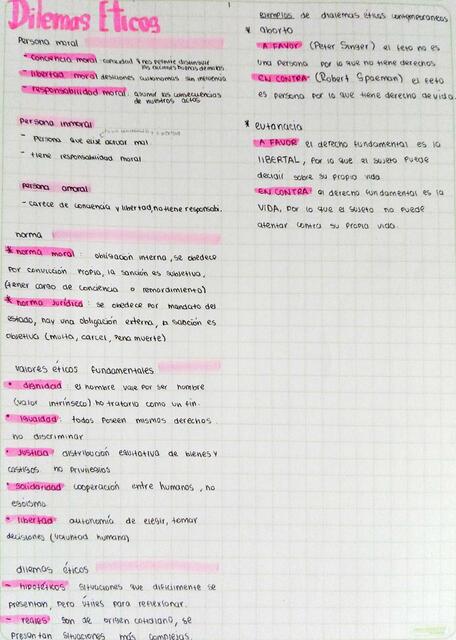 Dilemas Éticos
persona moral
- conciencia moral: capacidad q nos permite distinguir
las acciones buenas de malas
- libertad moral decisiones autonomas sin influencia
- responsabilidad moral. asumir las consecuencias
de nuestros actos
persona inmoral
- persona que elije actuar mal
- tiene responsabilidad moral
persona amoral
- carece de conciencia y libertad, no tiene responsabi.
norma
* norma moral: obligación interna, se obedece
por convicción propia, la sanción es subjetiva,
(tener cargo de conciencia o remordimiento)
* norma jurídica: se obedece por mandato del
estado, hay una obligación externa, la sanción es
objetiva (multa, carcel, pena muerte)
valores éticos fundamentales
• dignidad: el hombre vale por ser hombre
(valor intrínseco) no tratarlo como un fin.
• igualdad: todos poseen mismos derechos.
no discriminar
• justicia distribución equitativa de bienes y
castigos no privilegios
• solidaridad cooperación entre humanos, no
egoismo
• libertad autonomía de elegir, tomar
decisiones (voluntad humana)
dilemas éticos
- hipotéticos situaciones que dificilmente se
presentan, pero útiles para reflexionar.
- reales son de origen cotidiano, se
presentan situaciones más complejas.
1
ejemplos de dialemas éticos contemporaneos
* aborto
A FAVOR (Peter Singer) el feto no es
una persona por lo que no tiene derechos
EN CONTRA (Robert Spaeman) el feto
es persona por lo que tiene derecho de vida.
* eutanacia
A FAVOR el derecho fundamental es la
LIBERTAL, por lo que el sujeto puede
decidir sobre su propia vida
EN CONTRA el derecho fundamental es la
VIDA, por lo que el sujeto no puede
atentar contra su propia vida.